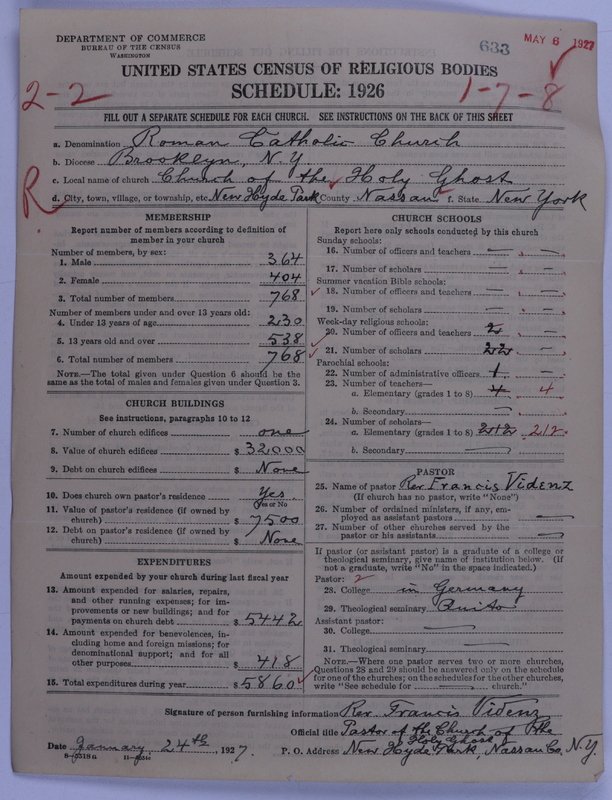 DEPARTMENT OF COMMERCE
BUREAU OF THE CENSUS
WASHINGTON
633
MAY 6 1927
UNITED STATES CENSUS OF RELIGIOUS BODIES
SCHEDULE: 1926
2-2
1-7-8
FILL OUT A SEPARATE SCHEDULE FOR EACH CHURCH. SEE INSTRUCTIONS ON THE BACK OF THIS SHEET
a. Denomination Roman Catholic Church
b. Diocese Brooklyn, N.Y.
c. Local name of church Church of the Holy Ghost
R
d. City, town, village, or township, etc. New Hyde Park County Nassau f. State New York
MEMBERSHIP
Report number of members according to definition of
member in your church
Number of members, by sex:
1. Male 364
2. Female 404
3. Total number of members 768
Number of members under and over 13 years old:
4. Under 13 years of age 230
5. 13 years old and over 538
6. Total number of members 768
NOTE.—The total given under Question 6 should be the
same as the total of males and females given under Question 3.
CHURCH BUILDINGS
See instructions, paragraphs 10 to 12
7. Number of church edifices one
8. Value of church edifices $ 32000
9. Debt on church edifices $ None
10. Does church own pastor's residence Yes
(Yes or No
11. Value of pastor's residence (if owned by
church) $ 7500
12. Debt on pastor's residence (if owned by
church) $ None
EXPENDITURES
Amount expended by your church during last fiscal year
13. Amount expended for salaries, repairs,
and other running expenses; for im-
provements or new buildings; and for
payments on church debt $ 5442
14. Amount expended for benevolences, in-
cluding home and foreign missions; for
denominational support; and for all
other purposes $ 418
15. Total expenditures during year $ 5860
CHURCH SCHOOLS
Report here only schools conducted by this church
Sunday schools:
16. Number of officers and teachers — —
17. Number of scholars — —
Summer vacation Bible schools:
18. Number of officers and teachers — —
19. Number of scholars — —
Week-day religious schools:
20. Number of officers and teachers 2 —
21. Number of scholars 22 —
Parochial schools:
22. Number of administrative officers 1 —
23. Number of teachers—
a. Elementary (grades 1 to 8) 4 4
b. Secondary —
24. Number of scholars—
a. Elementary (grades 1 to 8) 212 212
b. Secondary —
PASTOR
25. Name of pastor Rev Francis Videnz
(If church has no pastor, write "None")
26. Number of ordained ministers, if any, em-
ployed as assistant pastors —
27. Number of other churches served by the
pastor or his assistants —
If pastor (or assistant pastor) is a graduate of a college or
theological seminary, give name of institution below. (If
not a graduate, write "No" in the space indicated.)
Pastor: 2
28. College in Germany
29. Theological seminary Quito
Assistant pastor:
30. College —
31. Theological seminary —
NOTE.—Where one pastor serves two or more churches,
Questions 28 and 29 should be answered only on the schedule
for one of the churches; on the schedules for the other churches,
write "See schedule for — church."
Signature of person furnishing information Rev. Francis Videnz
Official title Pastor of the Church of the
Holy Ghost
Date January 24th, 1927.
P. O. Address New Hyde Park, Nassau Co. N.Y.